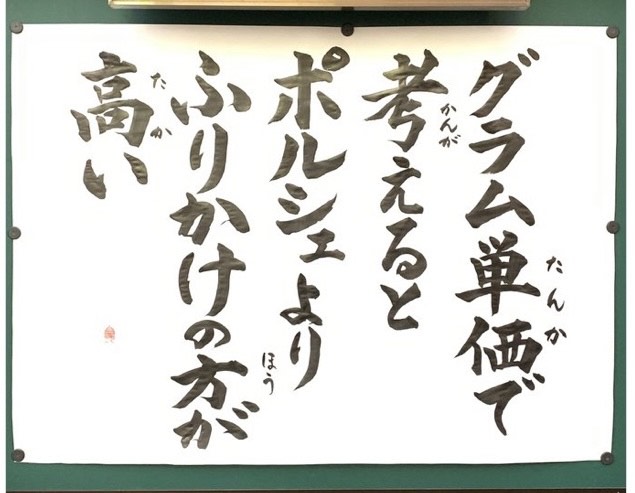 グラム単価で
たんか
考えると
かんが
ポルシェより
ふりかけの方が
ほう
高い
たか